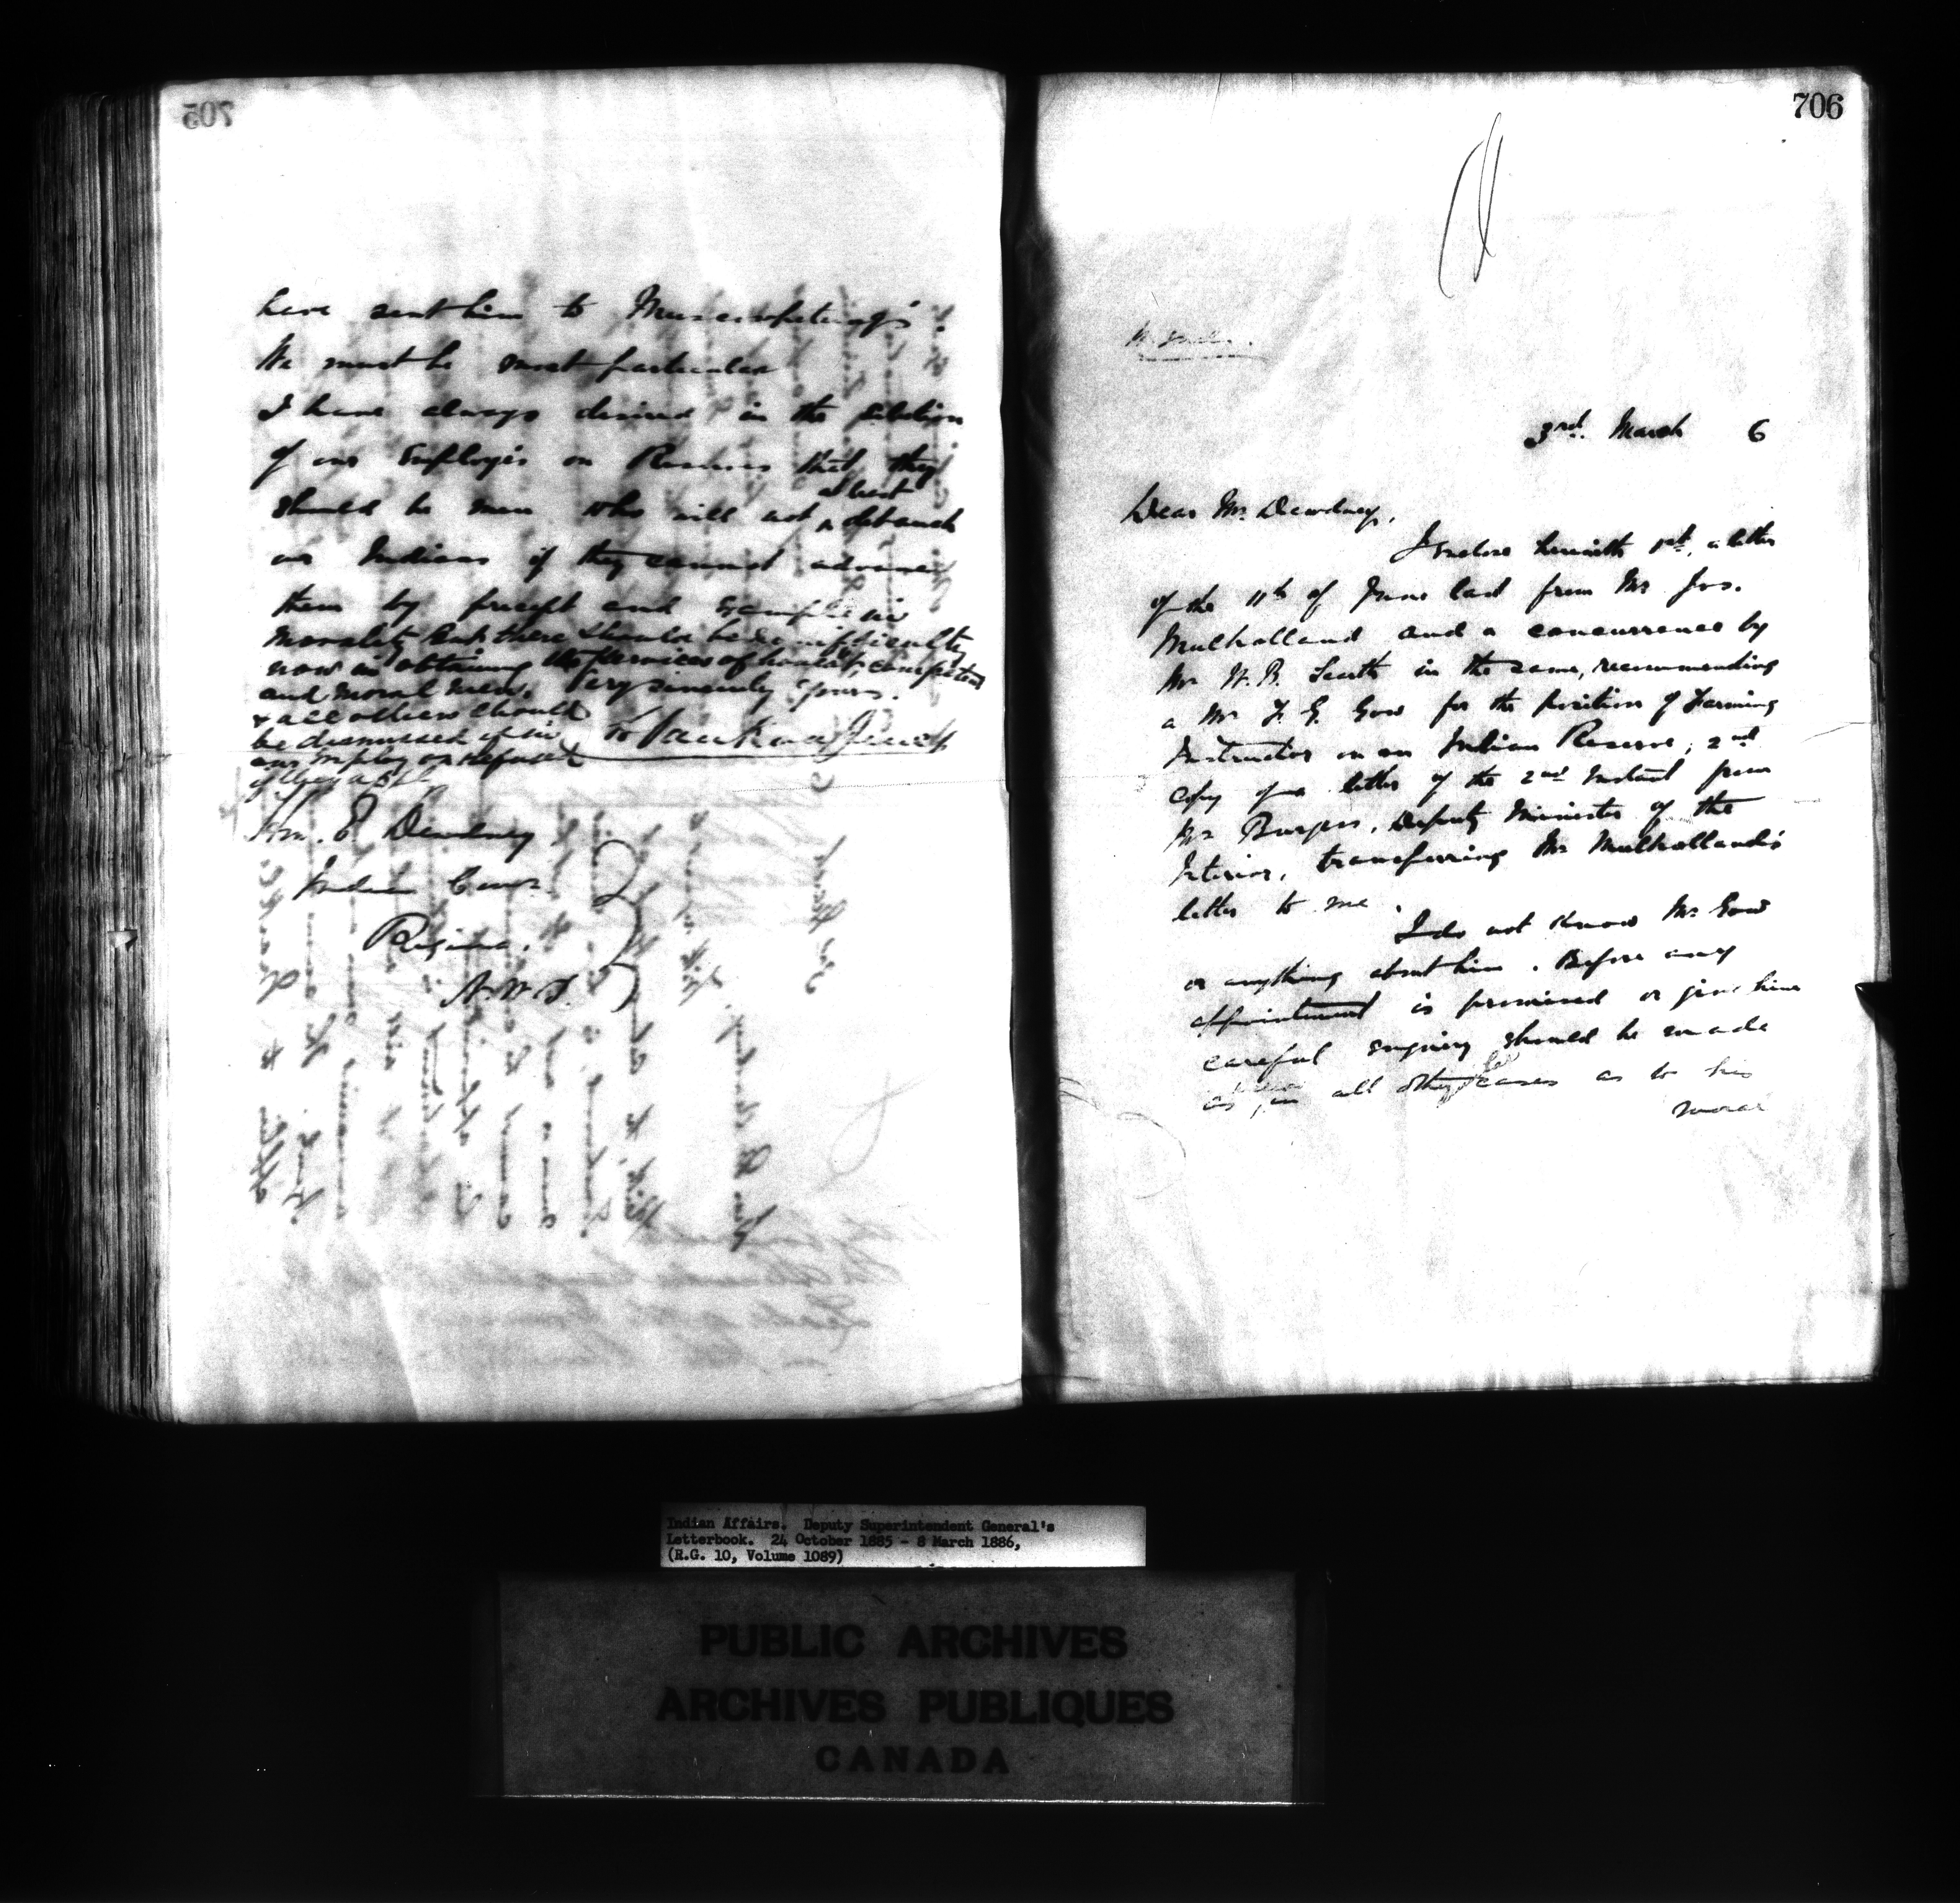 705
have sent him to Muscowpetung's.
We must be most particular
I have always desired in the selection
of our Employés on Reserves that they
should be men who will not at least debauch
our Indians if they cannot advance
them by precept and example in
morality but there should be no difficulty
now in obtaining the services of honest, competent
and moral men. Very sincerely yours.
& all others should
be dismissed if in
our employ or refused
if they apply
L. Vankoughnet
Hon. E Dewdney
Indian Comr.
Regina.
N.W.T.
706
3rd. March 6
Dear Mr. Dewdney,
I enclose herewith 1st, a letter
of the 11th of June last from Mr Jos.
Mulholland and a concurrence by
Mr W. B. Scarth in the same, recommending
a Mr F. G. Gow for the position of Farming
Instructor on an Indian Reserve; 2nd
copy of a letter of the 2nd Instant from
Mr Burgess, Deputy Minister of the
Interior, transferring Mr Mulholland's
letter to me.
I do not know Mr Gow
or anything about him. Before any
appointment is promised or given him
careful enquiry should be made
as in all other cases as to his
moral
Indian Affairs. Deputy Superintendent General's
Letterbook. 24 October 1885 - 8 March 1886,
(R.G. 10, Volume 1089)
PUBLIC ARCHIVES
ARCHIVES PUBLIQUES
CANADA